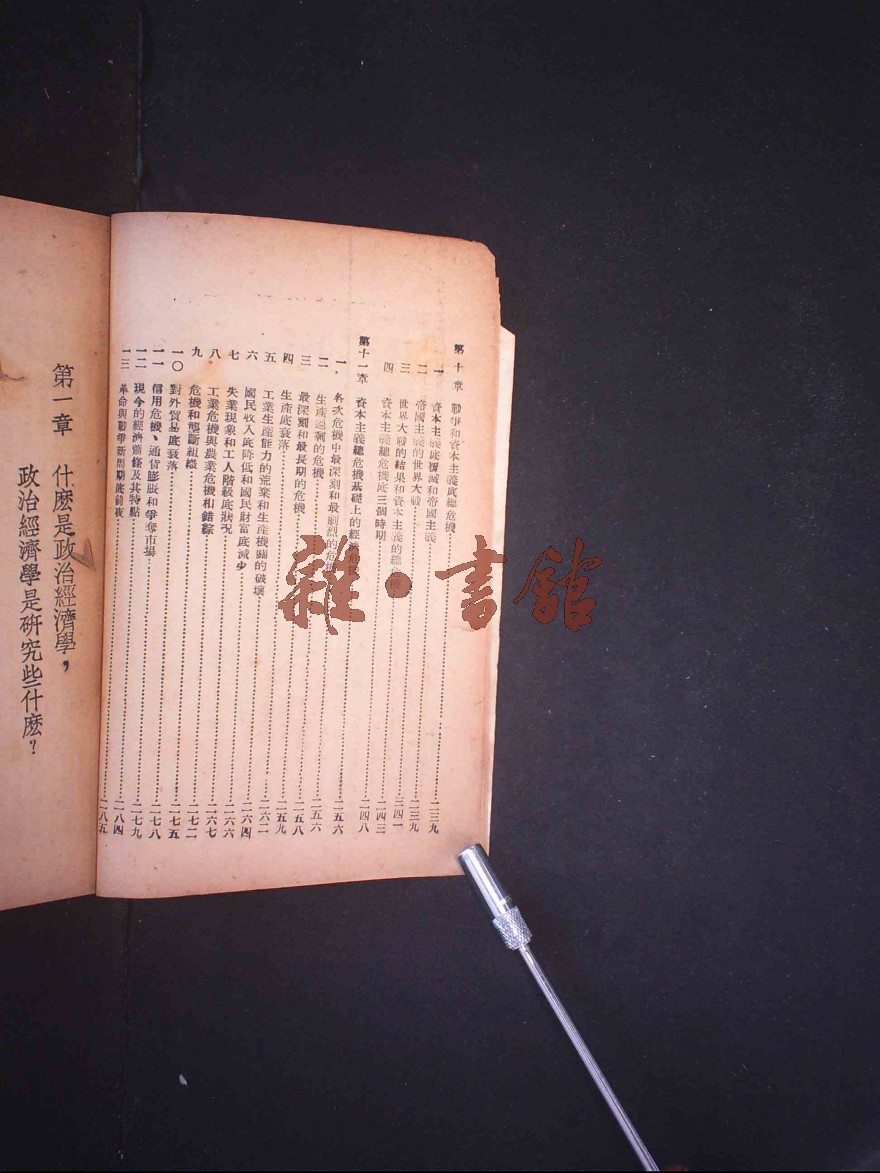 第十章 戰爭和資本主義底總危機
一 資本主義底覆滅和帝國主義……二三九
二 帝國主義的世界大戰……二三九
三 世界大戰的結果和資本主義的總危機……三四一
四 資本主義總危機底三個時期……二四三
第十一章 資本主義總危機基礎上的經濟危機……二四八
一、各次危機中最深刻和最劇烈的危機……二五六
二 生產過剩的危機……二五六
三 最深刻和最長期的危機……二五八
四 生產底衰落……二五九
五 工業生產能力的荒棄和生產機關的破壞……二六二
六 國民收入底降低和國民財富底減少……二六四
七 失業現象和工人階級底狀況……二六六
八 工業危機與農業危機相錯綜……二六七
九 危機和壟斷組織……二七二
一〇 對外貿易底衰落……二七五
一一 信用危機、通貨膨脹和爭奪市場……二七八
一二 現今的經濟蕭條及其特點……二七九
一三 革命與戰爭新周期底前夜……二八四
二八五
第一章 什麼是政治經濟學，
政治經濟學是研究些什麼？
雜·書館